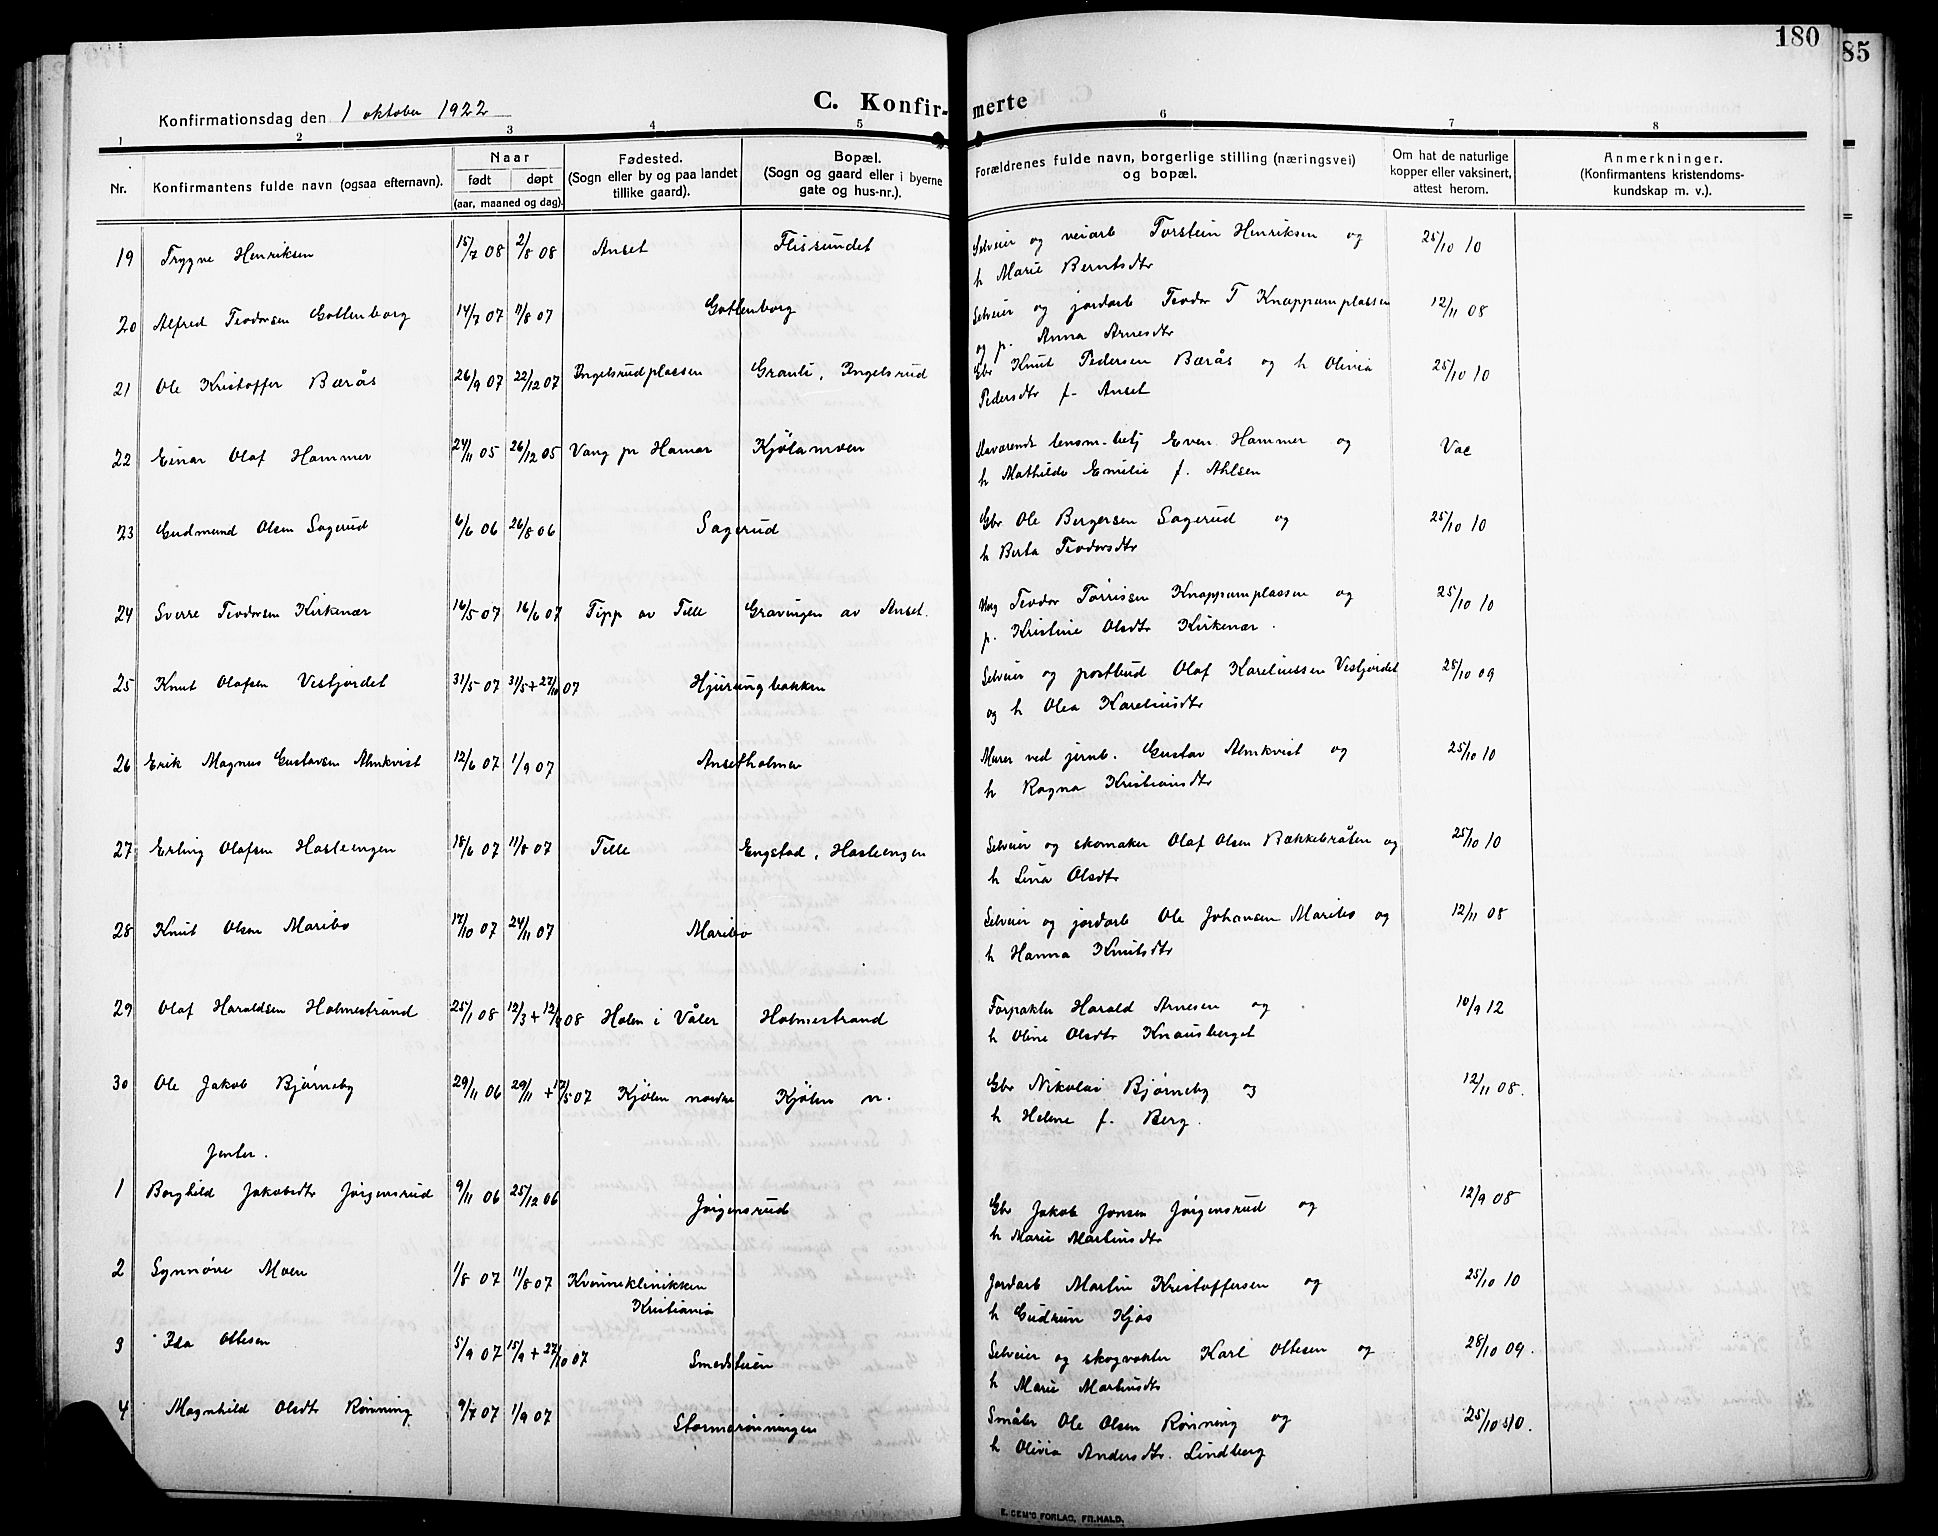 180
85
C. Konfir-
merte
Konfirmationsdag den 1 oktober 1922
1 2 3 4 5 6 7 8
Nr. Konfirmantens fulde navn (ogsaa efternavn).
Naar
født døpt
(aar, maaned og dag).
Fødested.
(Sogn eller by og paa landet
tillike gaard).
Bopæl.
(Sogn og gaard eller i byerne
gate og hus-nr.).
Forældrenes fulde navn, borgerlige stilling (næringsvei)
og bopæl.
Om hat de naturlige
kopper eller vaksinert,
attest herom.
Anmerkninger.
(Konfirmantens kristendoms-
kundskap m. v.).
19 Trygve Henriksen 15/7 08 2/8 08 Anset Flissundet Selveier og veiarb Torstein Henriksen og 25/10 10
h Marie Berntsdtr
20 Alfred Teodorsen Gottenborg 14/7 07 11/8 07 Gottenborg Selveier og jordarb Teodor T Knappumplassen 12/11 08
og p. Anna Arnesdtr
21 Ole Kristoffer Bærås 26/9 07 22/12 07 Engelsrudplassen Granli, Engelsrud Gbr Knut Pedersen Bærås og h Olivia 25/10 10
Pedersdtr f- Anset
22 Einar Olaf Hammer 24/11 05 26/12 05 Vang pr Hamar Kjølamoen Naværende lensm-betj Even Hammer og Vac
h Mathilde Emilie f. Ahlsen
23 Gudmund Olsen Sagerud 6/6 06 26/8 06 Sagerud Gbr Ole Bergersen Sagerud og 25/10 10
h Berta Teodorsdtr
24 Sverre Teodorsen Kirkenær 16/5 07 16/6 07 Tipp av Telle Gravingen av Anset. Ung Teodor Tørrissen Knappumplassen og 25/10 10
p. Kristine Olsdtr Kirkenær.
25 Knut Olafsen Vesfjordet 31/5 07 31/5 + 27/10 07 Hjurungbakken Selveier og postbud Olaf Kareliussen Vesfjordet 25/10 09
og h Olea Kareliusdtr
26 Erik Magnus Gustavsen Almkvist 12/6 07 1/9 07 Ansetholmen Murer ved jernb. Gustav Almkvist og 25/10 10
h Ragna Kristiansdtr
27 Erling Olafsen Hasleengen 18/6 07 11/8 07 Telle Engstad, Hasleengen Selveier og skomaker Olaf Olsen Bækkebråten og 25/10 10
h Lina Olsdtr
28 Knut Olsen Maribo 17/10 07 24/11 07 Maribo Selveier og jordarb Ole Johansen Maribo og 12/11 08
h Hanna Knutsdtr
29 Olaf Haraldsen Holmestrand 25/1 08 12/3 + 12/ 08 Holen i Våler Holmestrand Forpakter Harald Arnesen og 10/9 12
h Oline Olsdtr Knausberget
30 Ole Jakob Bjørneby 29/11 06 29/11 + 17/5 07 Kjølen nordre Kjølen n. Gbr Nikolai Bjørneby og 12/11 08.
h Helene f. Berg.
Jenter.
1 Borghild Jakobsdtr Jørgensrud 9/11 06 25/12 06 Jørgensrud Gbr Jakob Jonsen Jørgensrud og 12/9 08
h Marie Martinusdtr
2 Synnøve Moen 1/8 07 11/8 07 Kvinneklinikken Jordarb Martin Kristoffersen og 25/10 10
Kristiania h Gudrun Kjøs
3 Ida Ottesen 5/9 07 15/9 + 27/10 07 Smedstuen Selveier og skogvokter Karl Ottesen og 28/10 09.
h Marie Martinusdtr
4 Magnhild Olsdtr Rønning 9/7 07 1/9 07 Stormorønningen Småbr Ole Olsen Rønning og 25/10 10.
h Olivia Andersdtr. Lindberg
E. SEM'S FORLAG, FR.HALD.